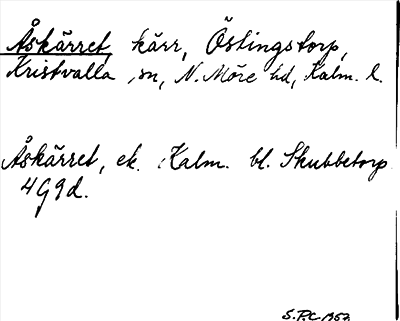 Åskärret, kärr, Östingstorp,
Kristvalla sn, N. Möre hd, Kalm. l.
Åskärret, ek. Kalm. bl. Skubbetorp
4G9d.
S.P.C. 1957